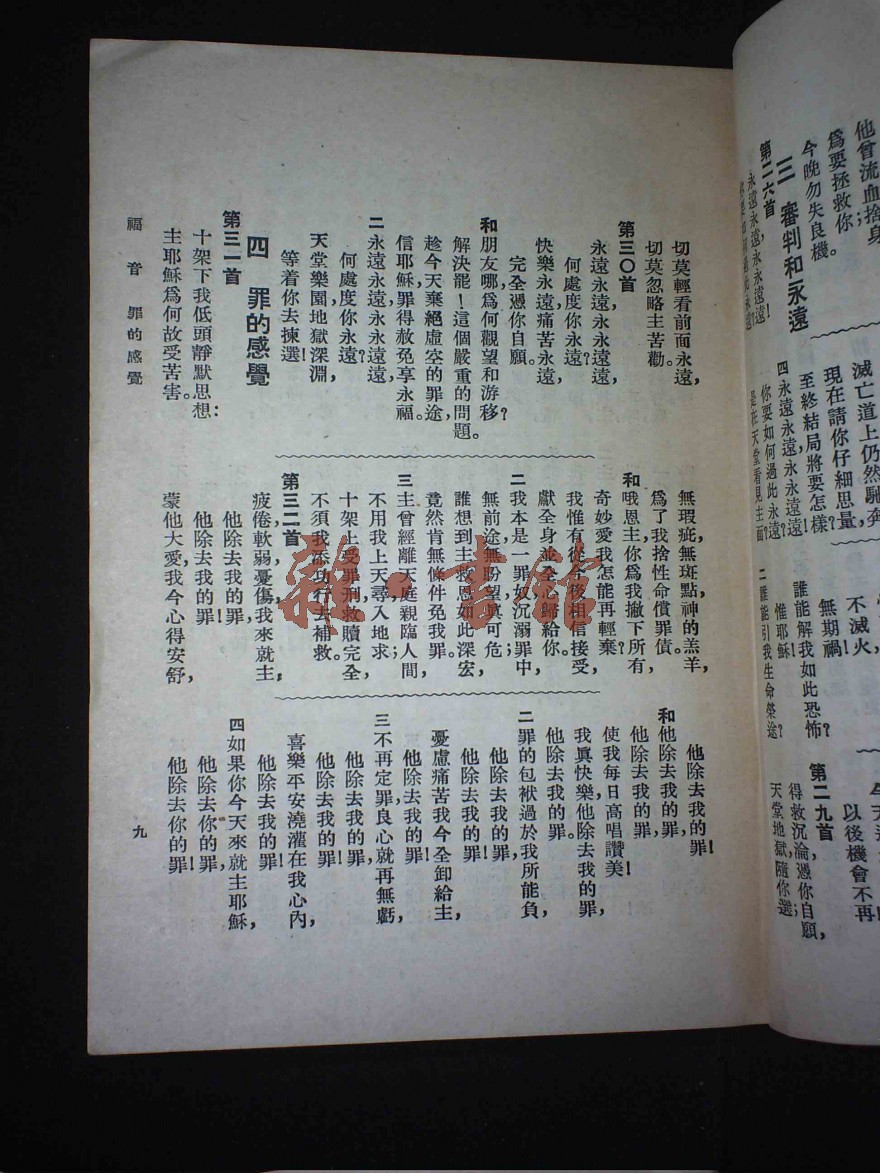 他曾流血捨身;
爲要拯救你。
今晚勿失良機。
三 審判和永遠
第二六首
永遠永遠,永永遠遠!
滅亡道上仍然馳奔
現在請你仔細思量,
至終結局將要怎樣?
四永遠永遠,永永遠遠!
你要如何過此永遠?
是在天堂看見主面?
不滅火,
無期禍!
誰能解我如此恐怖?
惟耶穌!
二誰能引我生命榮途?
以後機會不再
第二九首
得救沉淪,憑你自願,
天堂地獄,隨你選;
切莫輕看前面永遠,
切莫忽略主苦勸。
第三〇首
永遠永遠永永遠遠,
何處度你永遠?
快樂永遠痛苦永遠,
完全憑你自願。
和朋友哪,爲何觀望和游移?
解決罷!這個嚴重的問題。
趁今天棄絕虛空的罪途,
信耶穌,罪得赦免享永福。
二永遠永遠,永永遠遠,
何處度你永遠?
天堂樂園地獄深淵,
等着你去揀選!
四 罪的感覺
第三一首
十架下我低頭靜默思想:
主耶穌爲何故受苦害。
無瑕疵無斑點神的羔羊,
爲了我捨性命償罪債。
和哦恩主你爲我撇下所有,
奇妙愛我怎能再輕棄?
我惟有從今後相信接受,
獻全身並全心歸給你。
二我本是一罪奴沉溺罪中,
無前途無盼望眞可危;
誰想到主救恩如此深宏,
竟然肯無條件免我罪。
三主曾經離天庭親臨人間,
不用我上天尋入地求,
十架上受罪刑救贖完全,
不須我添功行去補救。
第三二首
疲倦軟弱憂傷,我來就主,
他除去我的罪!
他除去我的罪!
蒙他大愛,我今心得安舒,
他除去我的罪!
和他除去我的罪,
他除去我的罪,
使我每日高唱讚美!
我眞快樂他除去我的罪,
他除去我的罪。
二罪的包袱過於我所能負,
他除去我的罪!
他除去我的罪!
憂慮痛苦我今全卸給主,
他除去我的罪!
三不再定罪良心就再無虧,
他除去我的罪!
他除去我的罪!
喜樂平安澆灌在我心內,
他除去我的罪!
四如果你今天來就主耶穌,
他除去你的罪!
他除去你的罪!
福音 罪的感覺
九
雜·書館